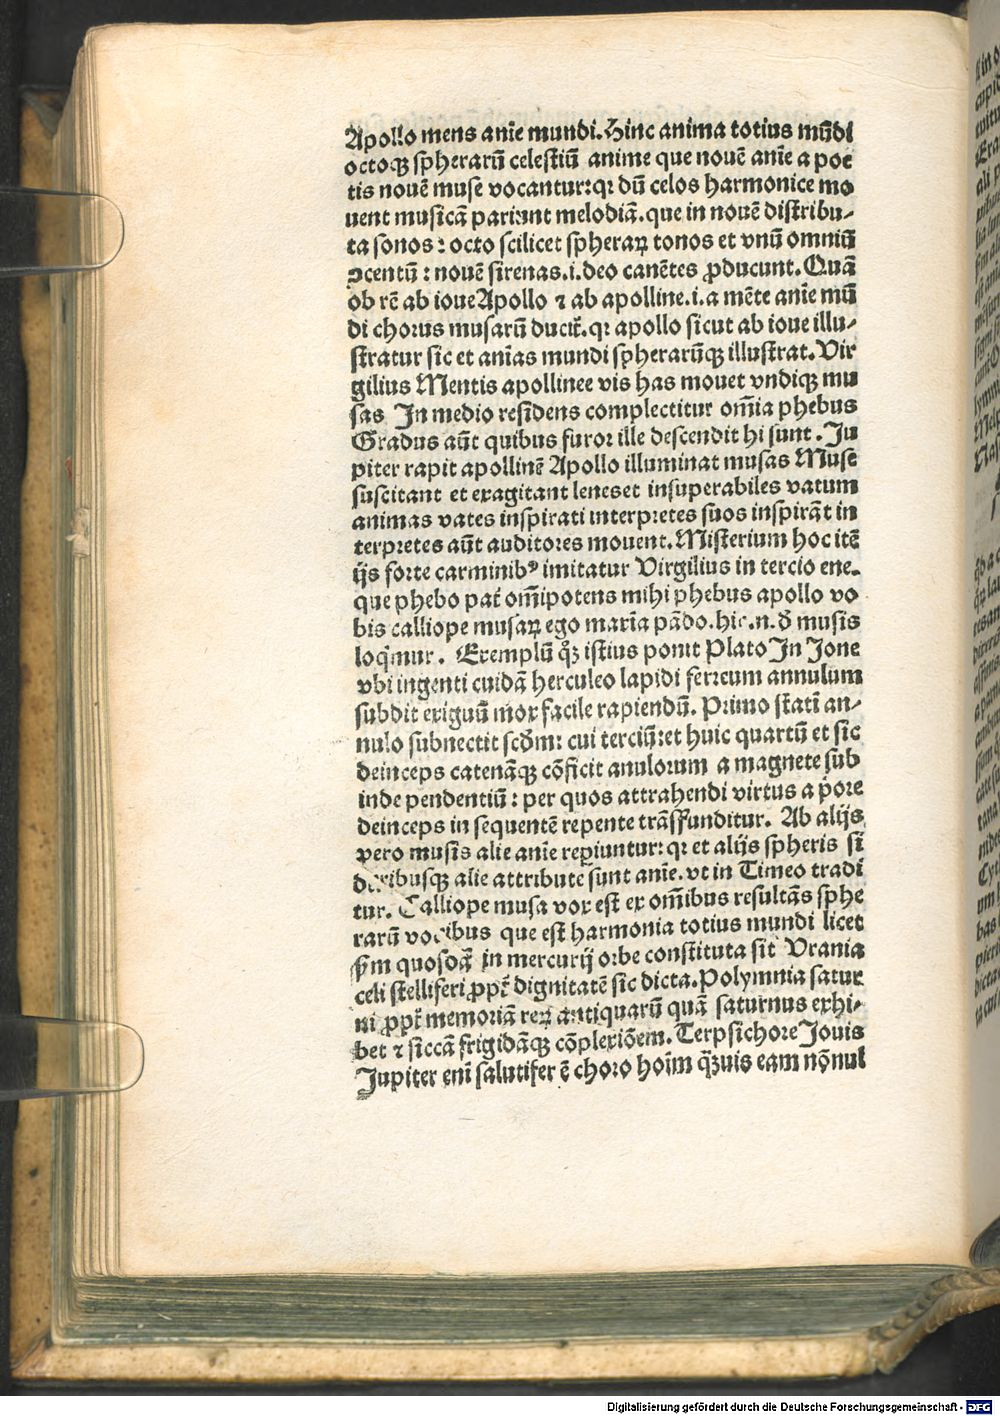 Apollo mens anīe mundi. Hinc anima totius mūdi
octoqꝫ spherarū celestiū anime que nouē anīe a poe
tis nouē muse vocantur: qꝛ dū celos harmonice mo
uent musicā pariunt melodiā. que in nouē distribu-
ta sonos: octo scilicet spheraꝝ tonos et vnū omniū
ↄcentū: nouē sirenas .i. deo canētes ꝓducunt. Quā
ob rē ab ioue Apollo ⁊ ab apolline .i. a mēte anīe mū
di chorus musarū ducit̃. qꝛ apollo sicut ab ioue illu-
stratur sic et anīas mundi spherarūqꝫ illustrat. Vir
gilius Mentis apollinee vis has mouet vndiqꝫ mu
sas In medio residens complectitur om̄ia phebus
Gradus aūt quibus furor ille descendit hi sunt. Ju
piter rapit apollinē Apollo illuminat musas Muse
suscitant et exagitant leneset insuperabiles vatum
animas vates inspirati interpretes suos inspirāt in
terpretes aūt auditores mouent. Misterium hoc itē
ijs forte carminibꝰ imitatur Virgilius in tercio ene.
que phebo pat̄ om̄ipotens mihi phebus apollo vo
bis calliope musaꝝ ego maxīa pādo. hic .n. ð musis
loqͥmur. Exemplū qꝫ istius ponit Plato In Jone
vbi ingenti cuidā herculeo lapidi ferreum annulum
subdit exiguū mox facile rapiendū. Primo statī an-
nulo subnectit scðm: cui terciū: et huic quartū et sic
deinceps catenāqꝫ cōficit anulorum a magnete sub
inde pendentiū: per quos attrahendi virtus a p̄ore
deinceps in sequentē repente trāsfunditur. Ab alijs
vero musis alie anīe rapiuntur: qꝛ et alijs spheris si
deribusqꝫ alie attribute sunt anīe. vt in Timeo tradi
tur. Calliope musa vox est ex om̄ibus resultās sphe
rarū vocibus que est harmonia totius mundi licet
ẜm quosdā in mercurij orbe constituta sit Vrania
celi stelliferi ꝓpt̃ dignitatē sic dicta. Polymnia satur
ni ꝓpt̃ memoriā reꝝ antiquarū quā saturnus exhi-
bet ⁊ siccā frigidāqꝫ cōplexiōem. Terpsichore Jouis
Jupiter enī salutifer ē choro hoīm qͣꝫuis eam nōnul
Digitalisierung gefördert durch die Deutsche Forschungsgemeinschaft - DFG